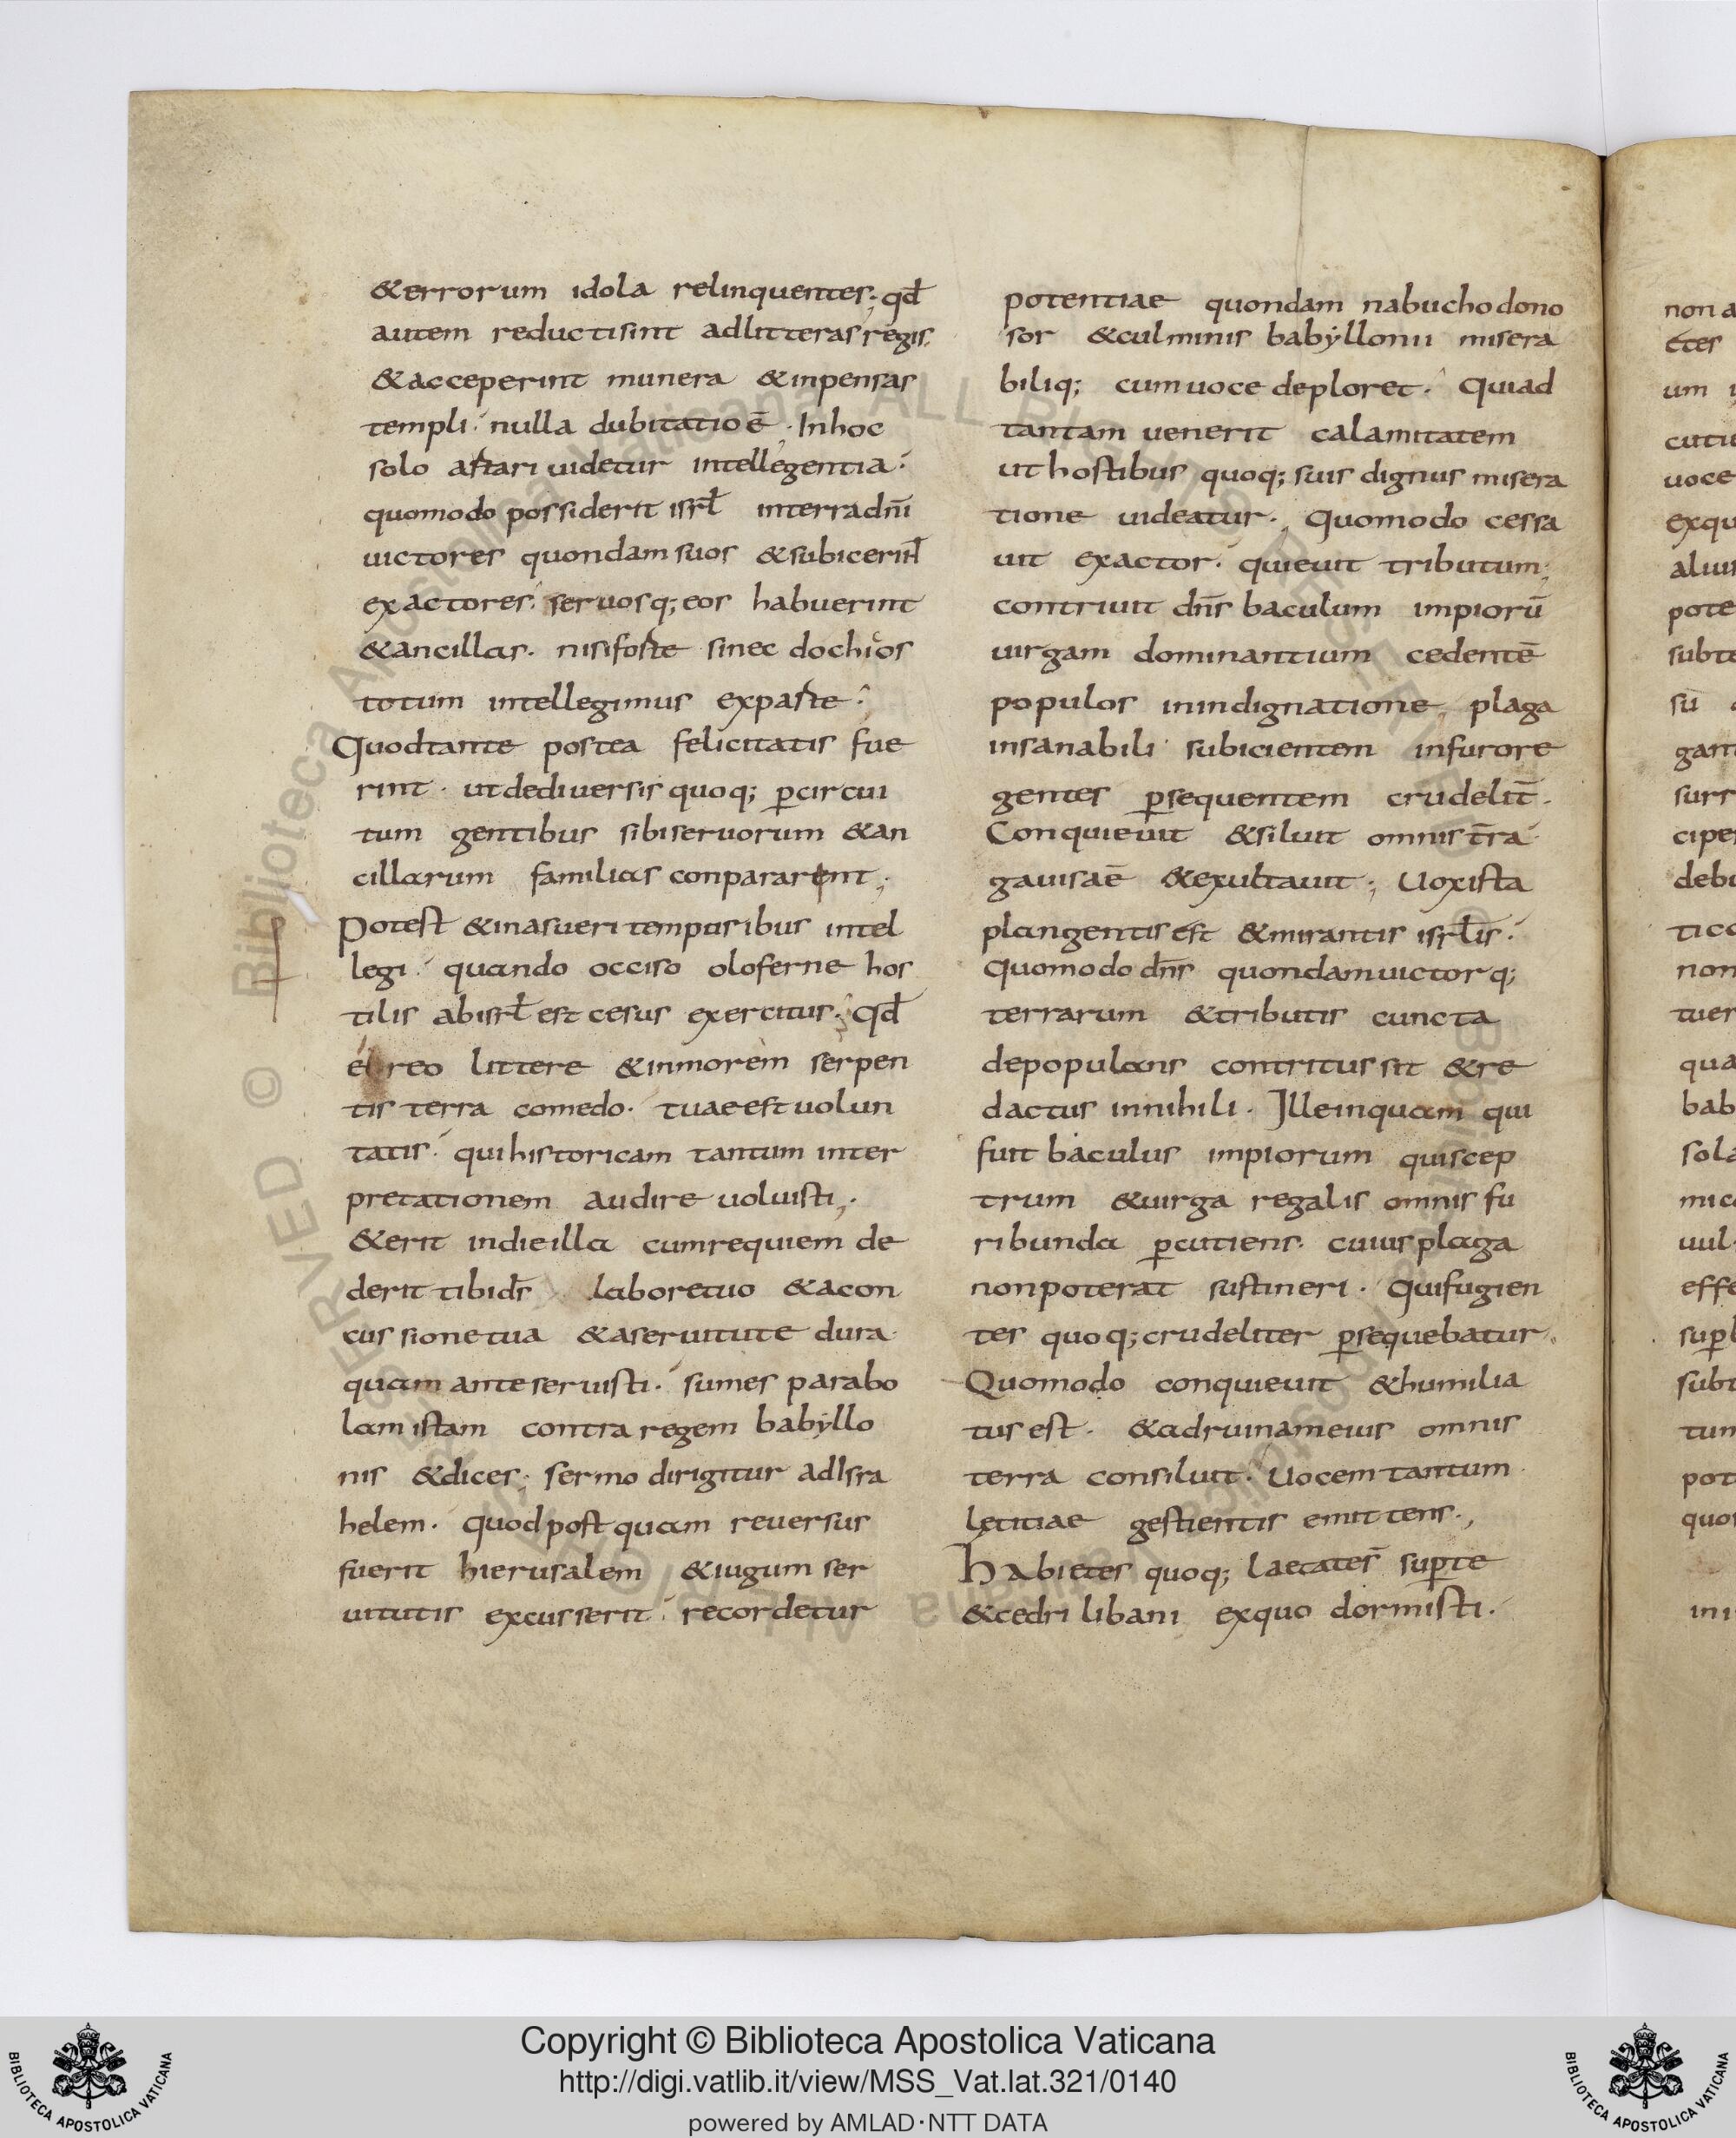 &errorum idola relinquentes; qđ
autem reducti sint ad litteras regis.
&acceperint munera &inpensas
templi. nulla dubitatio ē. In hoc
solo astari uidetur intellegentia.
quomodo possiderit isrł in terra dn̄i
uictores quondam suos &subicerint
exactores. seruosq; eos habuerint
&ancillas. nisi foste sinec dochios
totum intellegimus ex paste.
Quod tante postea felicitatis fue
rint. ut de diuersis quoq; ꝑ circui
tum gentibus sibi seruorum &an
cillarum familias conpararent;
Potest &in asueri temporibus intel
legi. quando occiso oloferne hos
tilis ab isrł est cesus exercitus. Qđ
ebreo littere &in morem serpen
tis terra comedo. tuae est uolun
tatis. qui historicam tantum inter
pretationem audire uoluisti;
&erit in die illa cum requiem de
derit tibi ds̄ labore tuo &a con
cussione tua &a seruitute dura
quam ante seruisti. sumes parabo
lam istam contra regem babyllo
nis &dices; sermo dirigitur ad Isra
helem. quod post quam reuersus
fuerit hierusalem &iugum ser
uitutis excusserit. recordetur
potentiae quondam nabuchodono
sor &culminis babyllonii misera
biliq; cum uoce deploret. Qui ad
tantam uenerit calamitatem
ut hostibus quoq; suis dignus misera
tione uideatur. Quomodo cessa
uit exactor. quieuit tributum;
contriuit dn̄s baculum impiorū
uirgam dominantium cedentē
populos in indignatione, plaga
insanabili subicientem in furore
gentes ꝑsequentem crudelit̄.
Conquieuit &siluit omnis t̄ra
gauisa ē &exultauit; Uox ista
plangentis est &mirantis isrłis.
Quomodo dn̄s quondam uictorq;
terrarum &tributis cuncta
depopulans contritus sit &re
dactus in nihili. Ille inquam qui
fuit baculus impiorum qui scep
trum &uirga regalis omnis fu
ribunda ꝑcutiens. cuius plaga
non poterat sustineri. Qui fugien
tes quoq; crudeliter ꝑsequebatur.
Quomodo conquieuit &humilia
tus est. &ad ruinam eius omnis
terra consiluit. Uocem tantum
lętitiae gestientis emittens.,
Habietes quoq; laetatę s̄ suꝑ te
&cedri libani ex quo dormisti.
non a
um
cutiu
uoce
exqu
aliu
pote
subte
su
gant
surr
cipe
debu
tico
non
tuer
qua
bab
sola
mic
uul
effe
suꝑb
subt
tum
pot
quo
in i
Copyright © Biblioteca Apostolica Vaticana
http://digi.vatlib.it/view/MSS_Vat.lat.321/0140
powered by AMLAD·NTT DATA
BIBLIOTECA APOSTOLICA VATICANA
BIBLIOTECA APOSTOLICA VATICANA